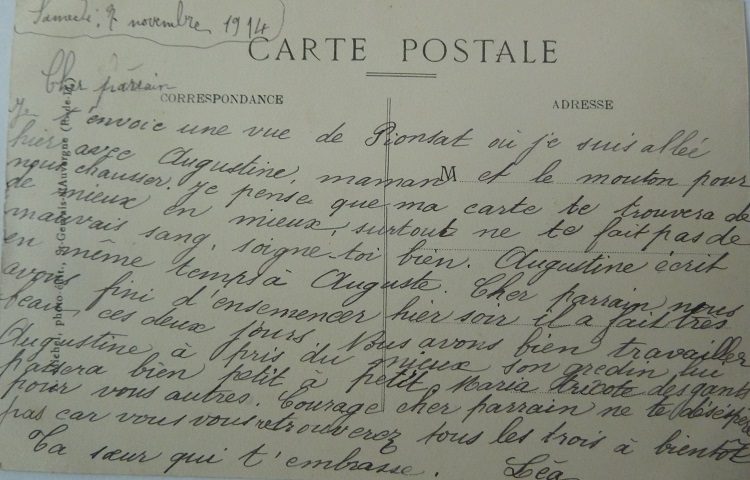 Samedi, 7 novembre 1914
CARTE POSTALE
Cher parrain
CORRESPONDANCE
ADRESSE
Je t'envoie une vue de Pionsat où je suis allée
hier avec Augustine, maman et le mouton pour
nous chausser. Je pense que ma carte te trouvera de
de mieux en mieux, surtout ne te fait pas de
mauvais sang, soigne-toi bien. Augustine écrit
en même temps à Auguste. Cher parrain nous
avons fini d'ensemencer hier soir il a fait très
beau ces deux jours. Nous avons bien travailler
Augustine à pris du mieux son gredin lui
passera bien petit à petit. Maria tricote des gants
pour vous autres. Courage cher parrain ne te désespère
pas car vous vous retrouverez tous les trois à bientôt
Ta sœur qui t'embrasse. Léa
M
photo-édit., St-Gervais-d'Auvergne (P.-de-D.)